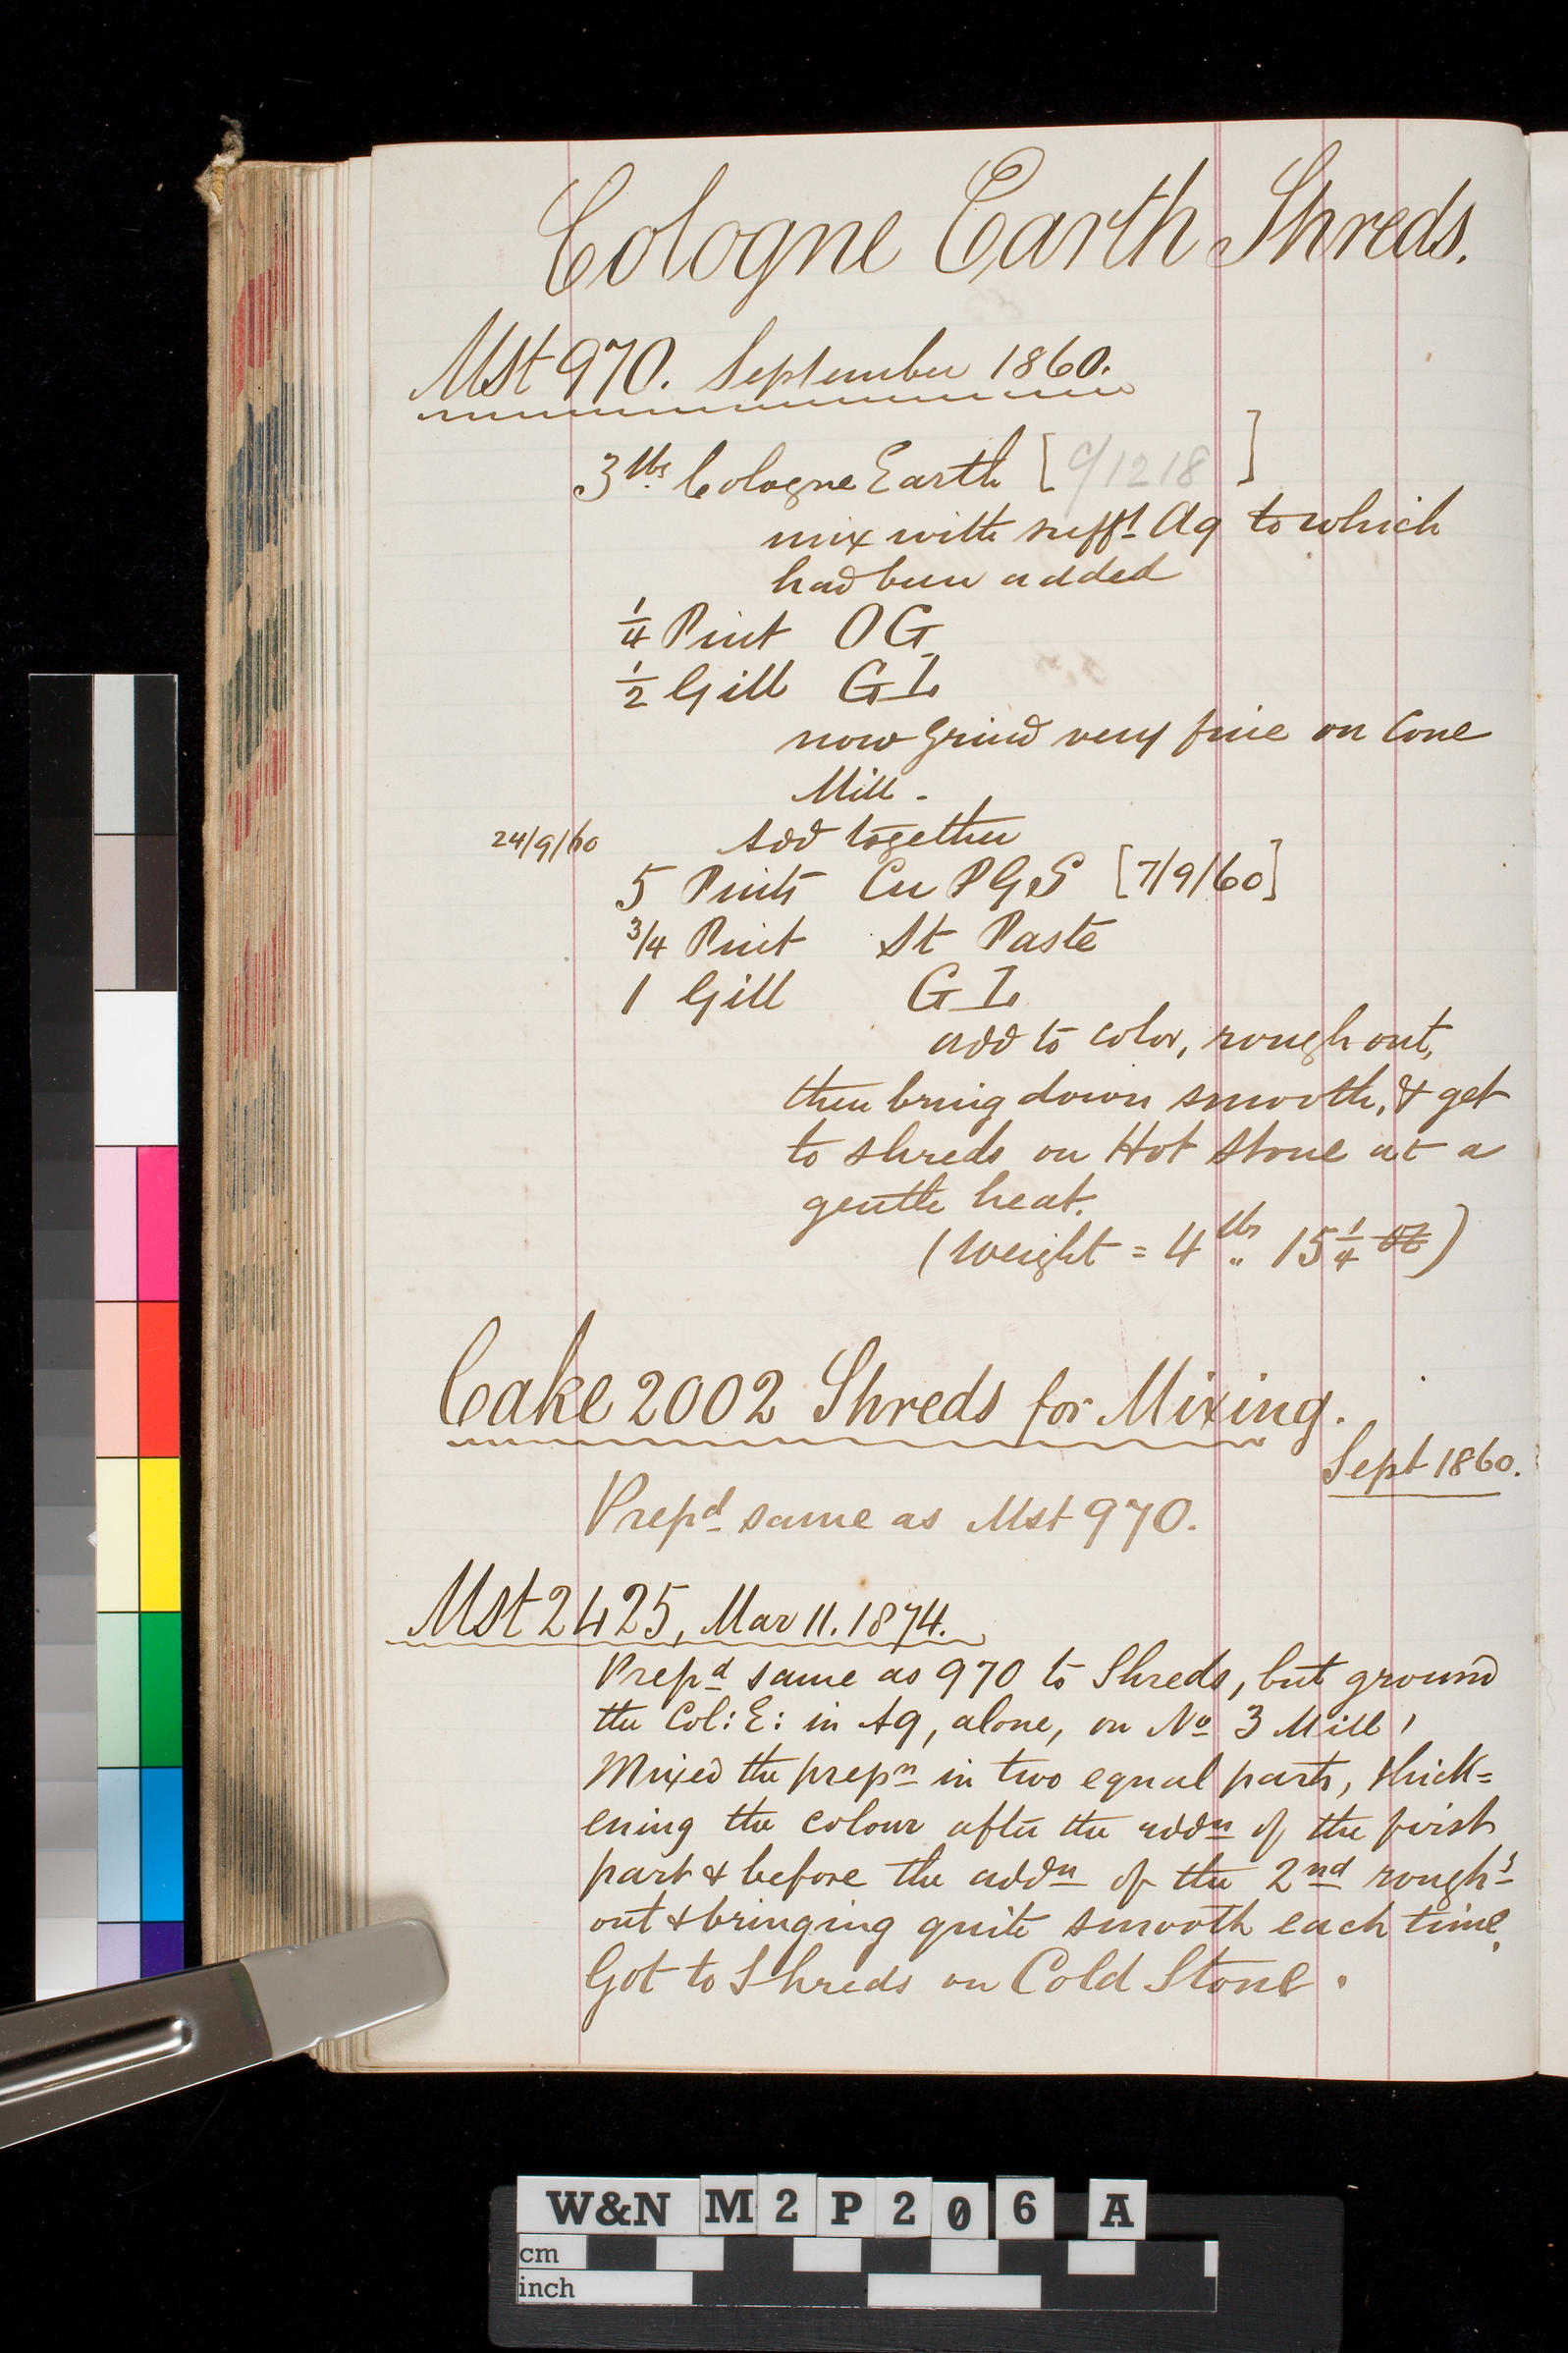 Cologne Earth Shreds.
Mst 970. September 1860.
3 lbs Cologne Earth [C/1218]
mix with sufft Aq to which
had been added
1/4 Pint OG
1/2 Gill GL
now grind very fine on Cone
Mill.
24/9/60 Add together
5 Pints Cu PGS [7/9/60]
3/4 Pint St Paste
1 Gill GL
add to color, rough out,
then bring down smooth, & get
to shreds on Hot Stone at a
gentle heat.
(Weight = 4 lbs „ 15 1/4 oz)
Cake 2002 Shreds for Mixing.
Sept 1860.
Prepd same as Mst 970.
Mst 2425, Mar 11. 1874.
Prepd same as 970 to Shreds, but ground
the Col: E: in Aq, alone, on No 3 Mill,
Mixed the prepn in two equal parts, thick=
ening the colour after the addn of the first
part & before the addn of the 2nd roughg
out & bringing quite smooth each time.
Got to Shreds on Cold Stone.
W&N M2P206 A
cm
inch